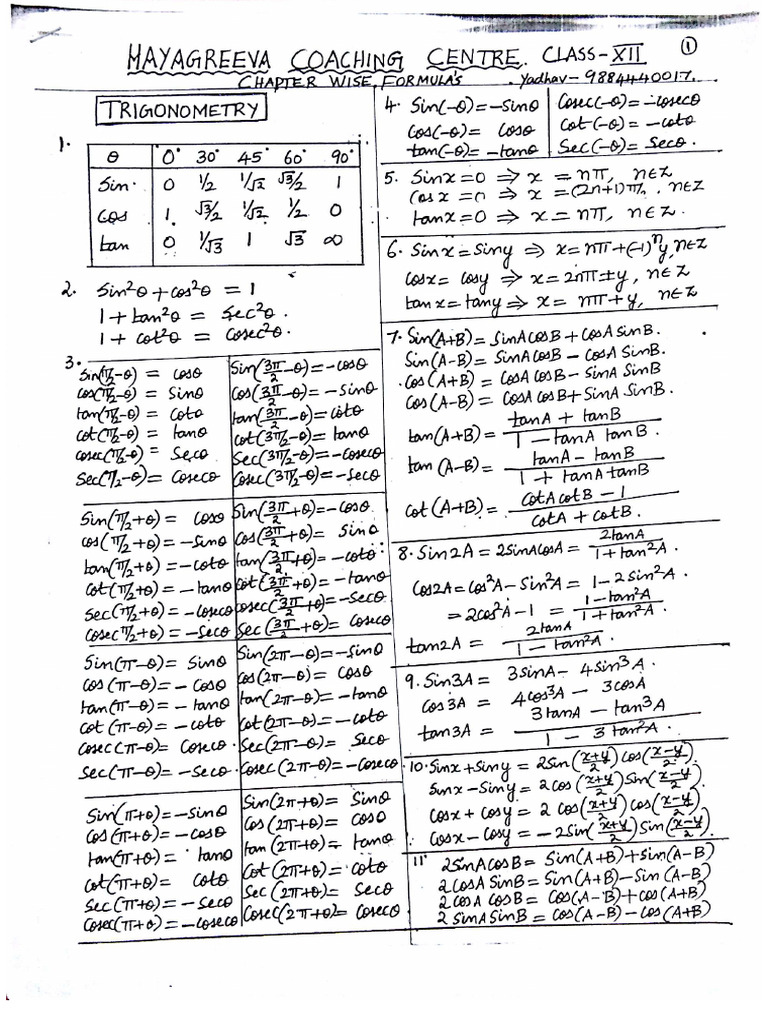 HAYAGREEVA COACHING CENTRE. CLASS-XII ①
CHAPTER WISE FORMULA'S Yadhav-9884440017.
TRIGONOMETRY
1.
θ 0° 30° 45° 60° 90°
Sin 0 1/2 1/√2 √3/2 1
Cos 1 √3/2 1/√2 1/2 0
tan 0 1/√3 1 √3 ∞
2. Sin²θ + cos²θ = 1
1 + tan²θ = Sec²θ.
1 + cot²θ = Cosec²θ.
3.
Sin(π/2-θ) = cosθ
cos(π/2-θ) = Sinθ
tan(π/2-θ) = cotθ
cot(π/2-θ) = tanθ
cosec(π/2-θ) = Secθ
Sec(π/2-θ) = Cosecθ
Sin(3π/2-θ) = -cosθ
cos(3π/2-θ) = -Sinθ
tan(3π/2-θ) = cotθ
cot(3π/2-θ) = tanθ
Sec(3π/2-θ) = -cosecθ
Cosec(3π/2-θ) = -Secθ
Sin(π/2+θ) = cosθ
cos(π/2+θ) = -Sinθ
tan(π/2+θ) = -cotθ
cot(π/2+θ) = -tanθ
Sec(π/2+θ) = -cosecθ
Cosec(π/2+θ) = -Secθ
Sin(3π/2+θ) = -cosθ
cos(3π/2+θ) = Sinθ
tan(3π/2+θ) = -cotθ
cot(3π/2+θ) = -tanθ
cosec(3π/2+θ) = -Secθ
Sec(3π/2+θ) = Cosecθ
Sin(π-θ) = Sinθ
cos(π-θ) = -Cosθ
tan(π-θ) = -tanθ
cot(π-θ) = -cotθ
Cosec(π-θ) = Cosecθ
Sec(π-θ) = -Secθ
Sin(2π-θ) = -Sinθ
cos(2π-θ) = Cosθ
tan(2π-θ) = -tanθ
Cot(2π-θ) = -cotθ
Sec(2π-θ) = Secθ
Cosec(2π-θ) = -Cosecθ
Sin(π+θ) = -Sinθ
Cos(π+θ) = -Cosθ
tan(π+θ) = tanθ
Cot(π+θ) = Cotθ
Sec(π+θ) = -Secθ
Cosec(π+θ) = -Cosecθ
Sin(2π+θ) = Sinθ
Cos(2π+θ) = cosθ
tan(2π+θ) = tanθ
Cot(2π+θ) = cotθ
Sec(2π+θ) = Secθ
Cosec(2π+θ) = Cosecθ
4. Sin(-θ) = -Sinθ
cos(-θ) = Cosθ
tan(-θ) = -tanθ
Cosec(-θ) = -cosecθ
Cot(-θ) = -cotθ
Sec(-θ) = Secθ.
5. Sinx=0 ⇒ x = nπ, n∈Z
Cosx=0 ⇒ x = (2n+1)π/2, n∈Z
tanx=0 ⇒ x = nπ, n∈Z.
6. Sinx = Siny ⇒ x = nπ+(-1)ⁿy, n∈Z
Cosx = Cosy ⇒ x = 2nπ±y, n∈Z
tanx = tany ⇒ x = nπ+y, n∈Z
7. Sin(A+B) = SinA cosB + CosA SinB.
Sin(A-B) = SinA cosB - CosA SinB.
Cos(A+B) = CosA CosB - SinA SinB
Cos(A-B) = CosA CosB + SinA SinB.
tan(A+B) = (tanA + tanB)/(1 - tanA tanB).
tan(A-B) = (tanA - tanB)/(1 + tanA tanB)
cot(A+B) = (CotA cotB - 1)/(CotA + CotB).
8. Sin2A = 2SinA cosA = 2tanA/(1+tan²A).
Cos2A = Cos²A - Sin²A = 1-2Sin²A.
= 2cos²A - 1 = (1-tan²A)/(1+tan²A).
tan2A = 2tanA/(1-tan²A).
9. Sin3A = 3SinA - 4Sin³A.
Cos3A = 4cos³A - 3cosA
tan3A = (3tanA - tan³A)/(1 - 3tan²A).
10. Sinx + Siny = 2Sin((x+y)/2) cos((x-y)/2).
Sinx - Siny = 2cos((x+y)/2) Sin((x-y)/2).
Cosx + Cosy = 2 Cos((x+y)/2) Cos((x-y)/2).
Cosx - Cosy = -2Sin((x+y)/2) Sin((x-y)/2).
11 2SinA cosB = Sin(A+B)+Sin(A-B)
2CosA SinB = Sin(A+B)-Sin(A-B)
2CosA CosB = Cos(A-B)+Cos(A+B)
2SinA SinB = Cos(A-B)-Cos(A+B)